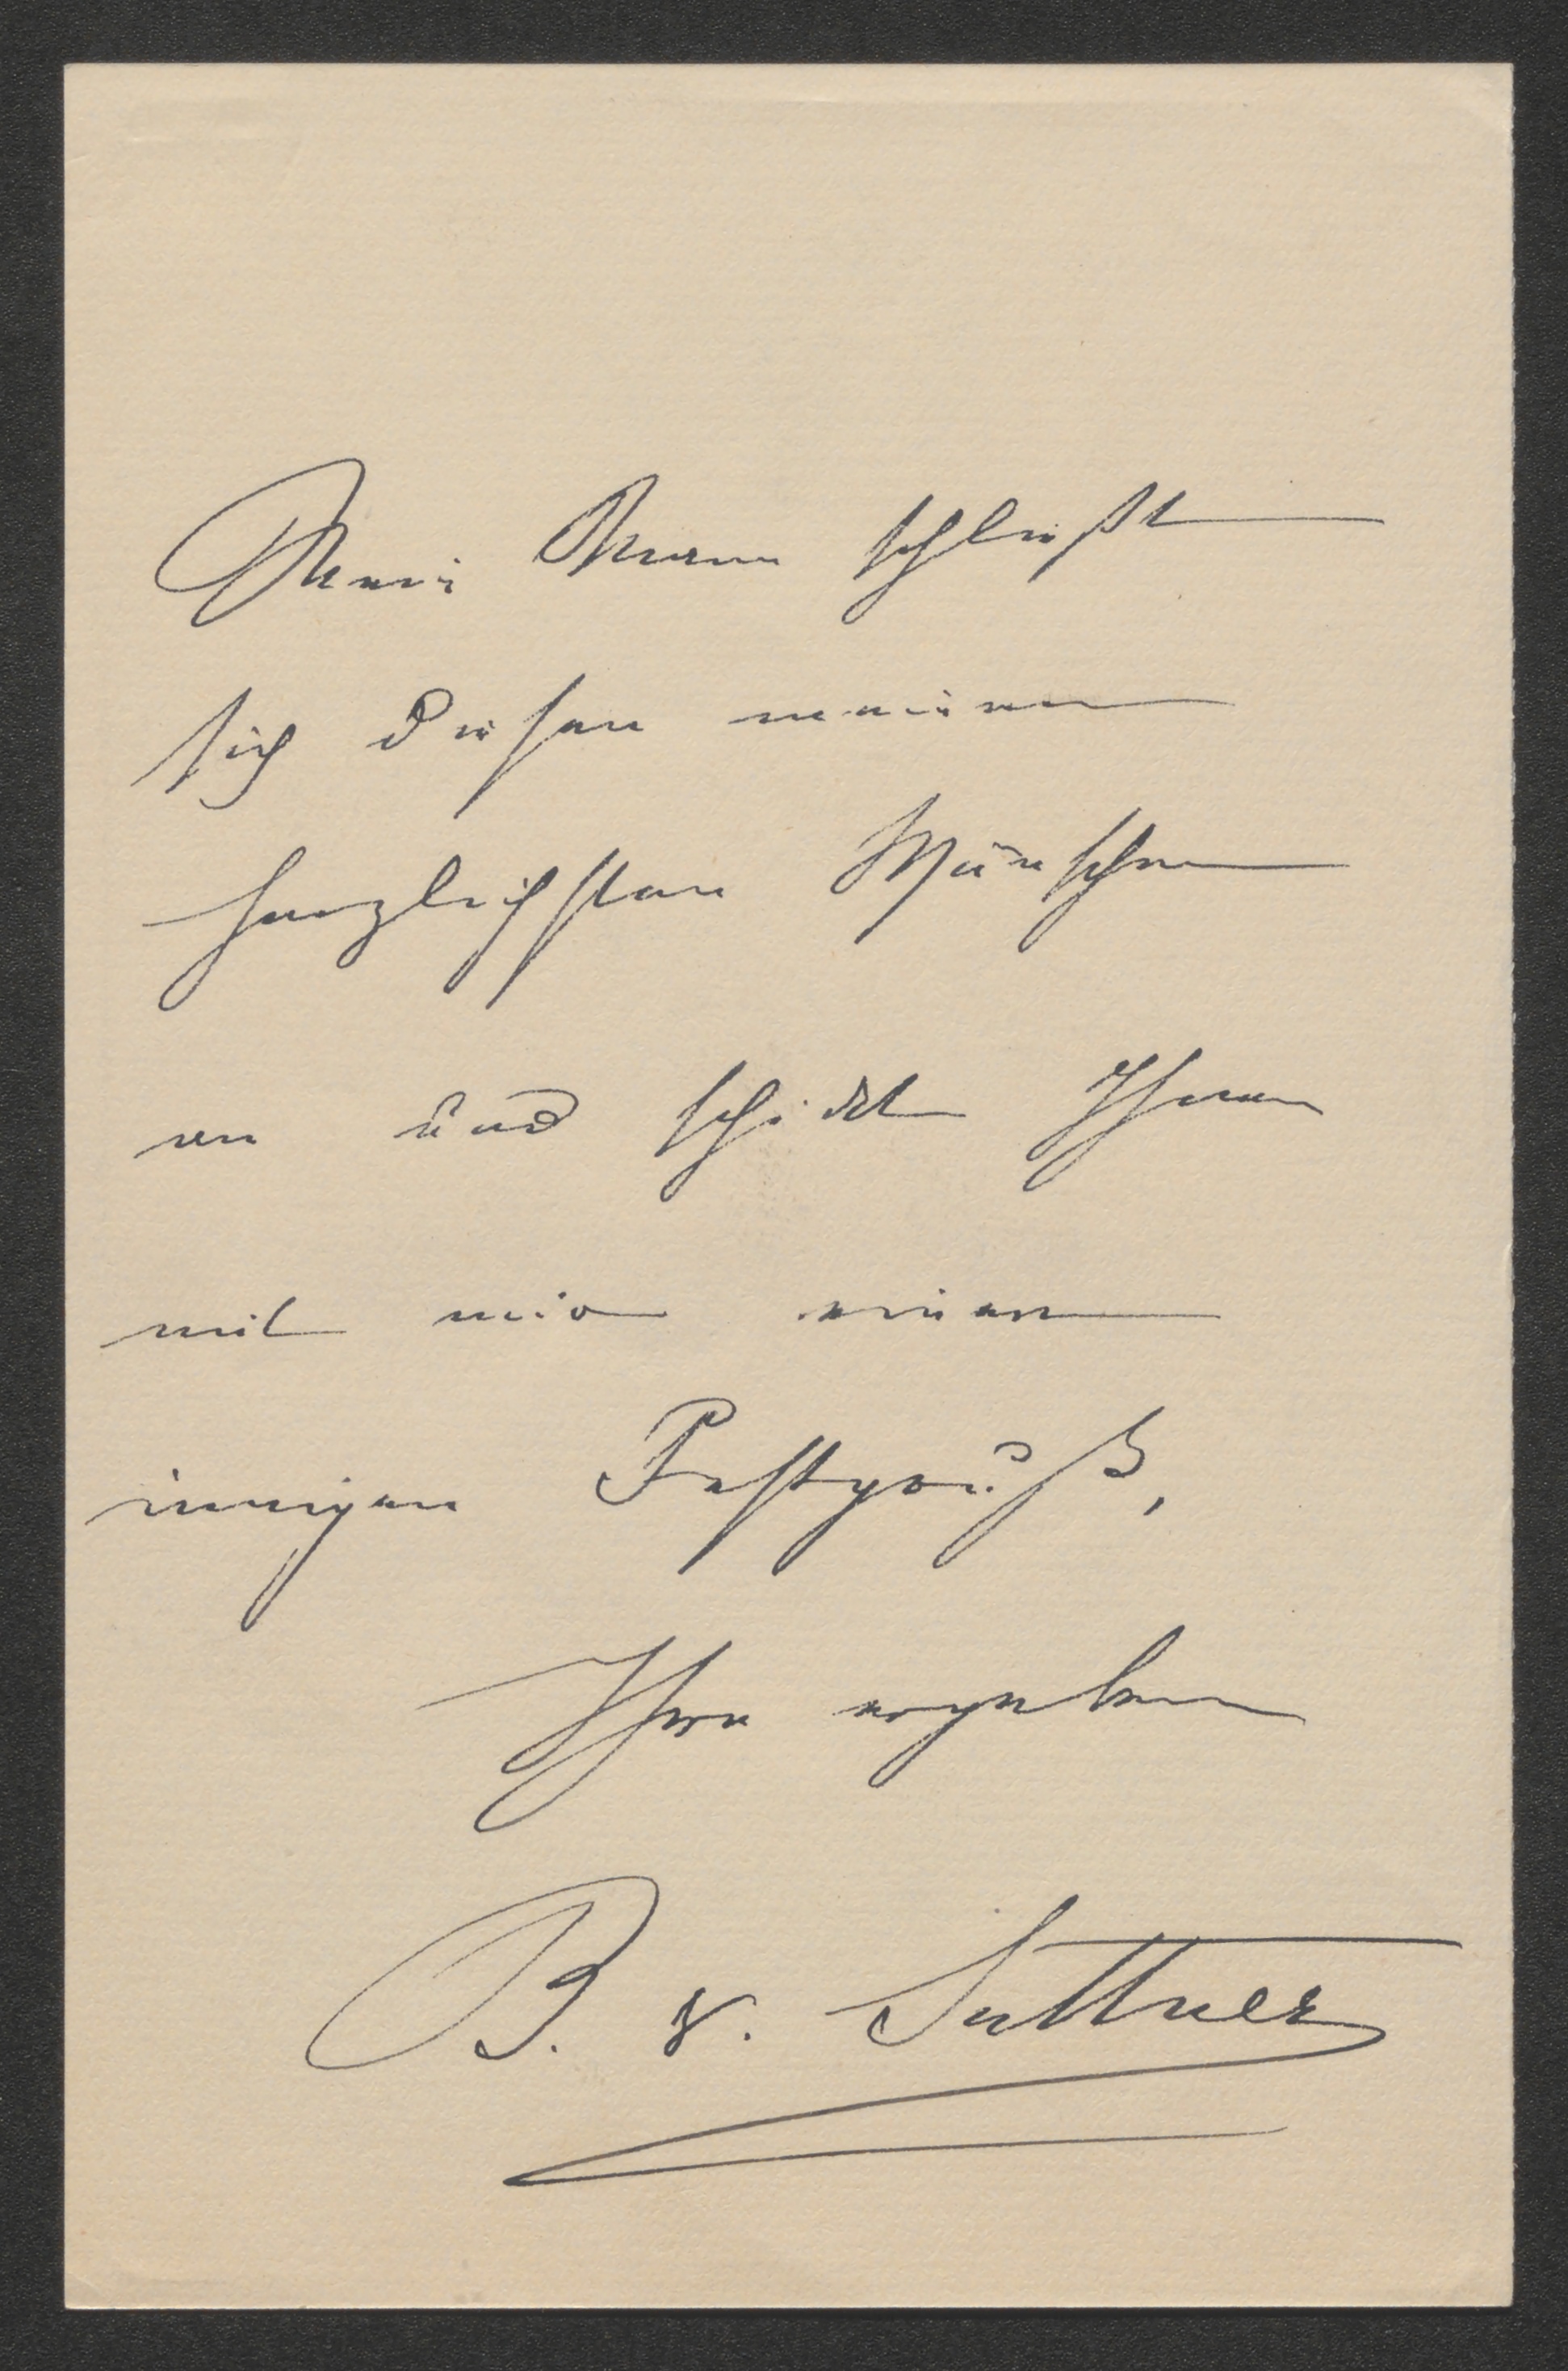 Mein Mann schließt
sich diesen meinen
herzlichsten Wünschen
an und schickt Ihnen
mit mir einen
innigen Festgruß,
Ihre ergebene
B. v. Suttner